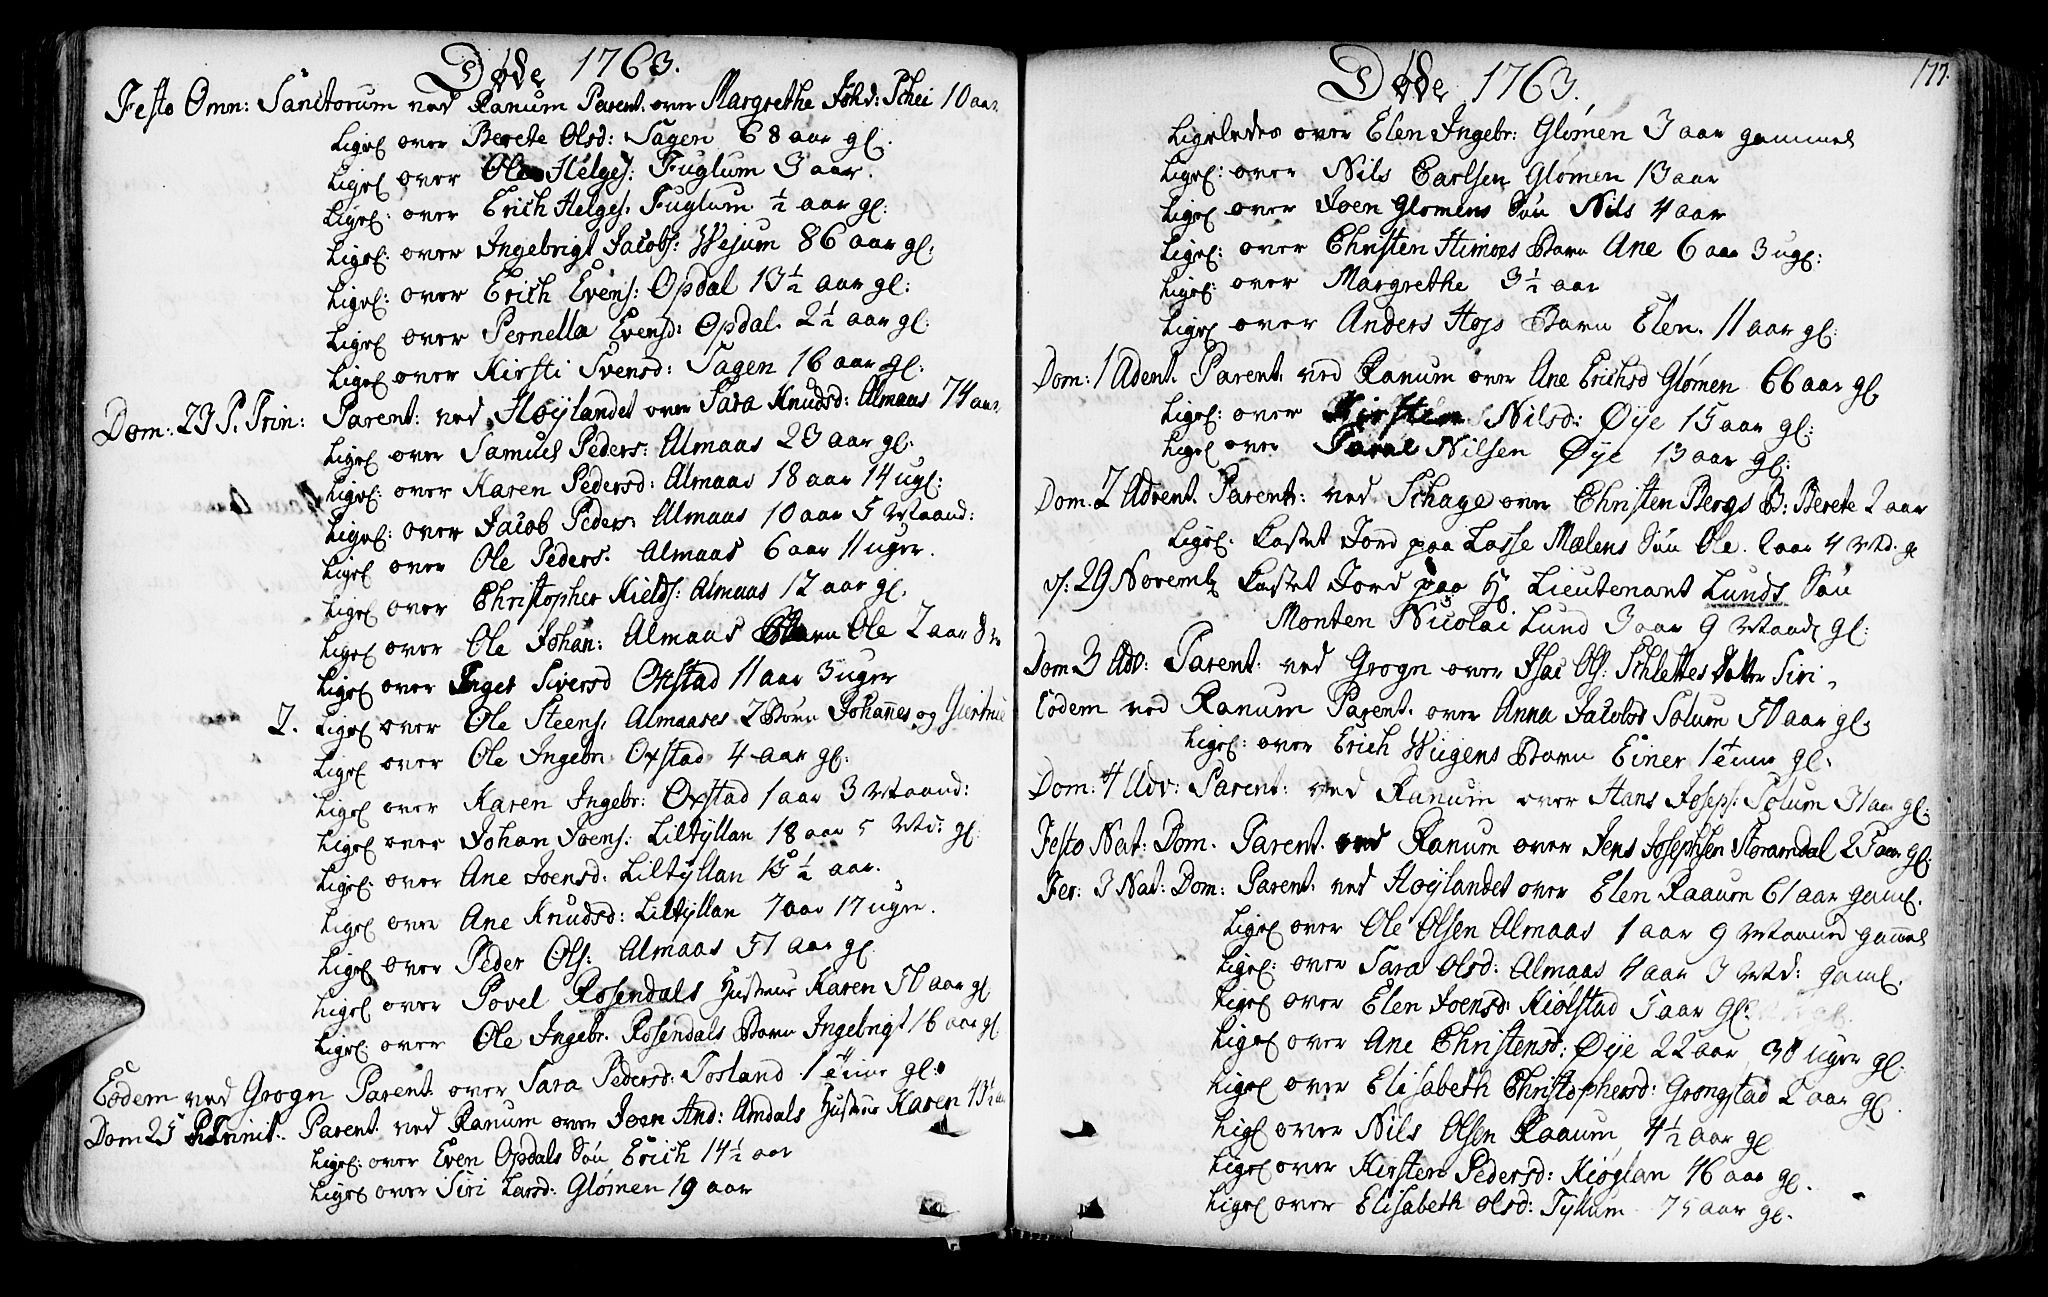 Døde 1763.
Festo Omn: Sanctorum ved Ranum Parent. over Margrethe Johd: Schei 10 aar
Ligel over Berete Olsd: Sagen 68 aar gl.
Ligel over Ole Helges: Fuglum 3 aar.
Ligel: over Erich Helges. Fuglum ½ aar gl:
Ligel: over Ingebrigt Jacobs: Wejum 86 aar gl:
Ligel: over Erich Evens: Opdal 13½ aar gl:
Ligel over Pernella Evensd: Opdal. 2½ aar gl:
Ligel over Kirsti Svensd: Sagen 16 aar gl:
Dom: 23 P. Trin: Parent: ved Høylandet over Sara Knudsd: Almaas 74 aar
Ligel over Samuel Peders: Almaas 23 aar gl:
Ligel: over Karen Pedersd: Almaas 18 aar 14 ugl:
Ligel: over Jacob Peders: Almaas 10 aar 5 Maand:
Ligel over Ole Peders. Almaas 6 aar 11 uger.
Ligel over Christopher Kields: Almaas 12 aar gl.
Ligel over Ole Johan: Almaas Barn Ole 2 aar 8
Ligel over Inger Siversd Oxstad 11 aar 3 uger
2. Ligel over Ole Steens. Almaases 2 Børn Johannes og Giertrue
Ligel over Ole Ingebr. Oxstad 4 aar gl:
Ligel over Karen Ingebr: Oxstad 1 aar 3 Maand:
Ligel over Johan Joens: Liltyllan 18 aar 5 Md: gl:
Ligel: over Ane Joensd: Liltyllan ½ aar.
Ligel over Ane Knudsd: Liltyllan 7 aar 17 uger.
Ligel over Peder Ols: Almaas 51 aar gl.
Ligel over Povel Rosendals Hustrue Karen 50 aar gl
Ligel: over Ole Ingebr. Rosendals Barn Ingebrigt 16 aar gl
Eodem ved Grogn Parent over Sara Pedersd: Tosland gl:
Dom 25 P. Trinit. Parent ved Ranum over Joen And: Amdals Hustrue Karen 43½
Ligel: over Even Opdals Søn Erich 14½ aar
Ligel over Siri Larsd: Glømen 19 aar
Døde 1763.
177.
Ligeledes over Elen Ingebr: Glømen 3 aar gammel
Ligel: over Nils Carlsen Glømen 13 aar
Ligel over Joen Glomens Søn Nils 4 aar
Ligel: over Christen Barn Ane 6 aar 3 ugl:
Ligel: over Margrethe 3½ aar
Ligel over Anders Hojs Barn Elen. 11 aar gl:
Dom: 1 Adent. Parent. ved Ranum over Ane Erichsd Glømen 66 aar gl
Ligel: over Kirsten Nilsd: Øye 15 aar gl:
Ligel over Nilsen Øye 13 aar gl:
Dom. 2 Advent. Parent: ved Schage over Christen Bergs B: Berete 2 aar
Ligel. Castet Jord paa Lasse Mælens Søn Ole. 2 aar 4 Md. g
d: 29 Novemb Castet Jord paa Hr Lieutenant Lunds Søn
Monten Nicolai Lund 3 aar 9 Maand gl:
Dom 3 Adv: Parent. ved Grogn over Isac Ols: Schlettes Datter Siri.
Eodem ved Ranum Parent. over Anna Jacobsd Solum 50 aar gl.
Ligel: over Erich Wiigens Barn Einer gl.
Dom: 4 Adv: Parent: ved Ranum over Hans Joseps: Solum 31 aar gl:
Festo Nat: Dom. Parent. ved Ranum over Jens Josephsen Storamdal 25 aar gl:
Fer: 3 Nat: Dom: Parent. ved Høylandet over Elen Raaum 61 aar gaml.
Ligel over Ole Olsen Almaas 1 aar 9 Maaned gammel
Ligel: over Sara Olsd: Almaas 4 aar 3 Md: gaml.
Ligel over Elen Joensd: Kiølstad 5 aar gl:
Ligel over Ane Christensd: Øye 22 aar 30 uger gl:
Ligel over Elisabeth Christophersd: Grongstad 2 aar gl.
Ligel over Nils Olsen Raaum 4½ aar gl
Ligel over Kirsten Pedersd: Kiøglan 46 aar gl.
Ligel over Elisabeth Olsd: Tyllum 75 aar gl.